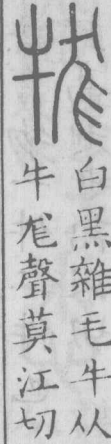 牻
白黑雜毛牛从
牛尨聲莫江切